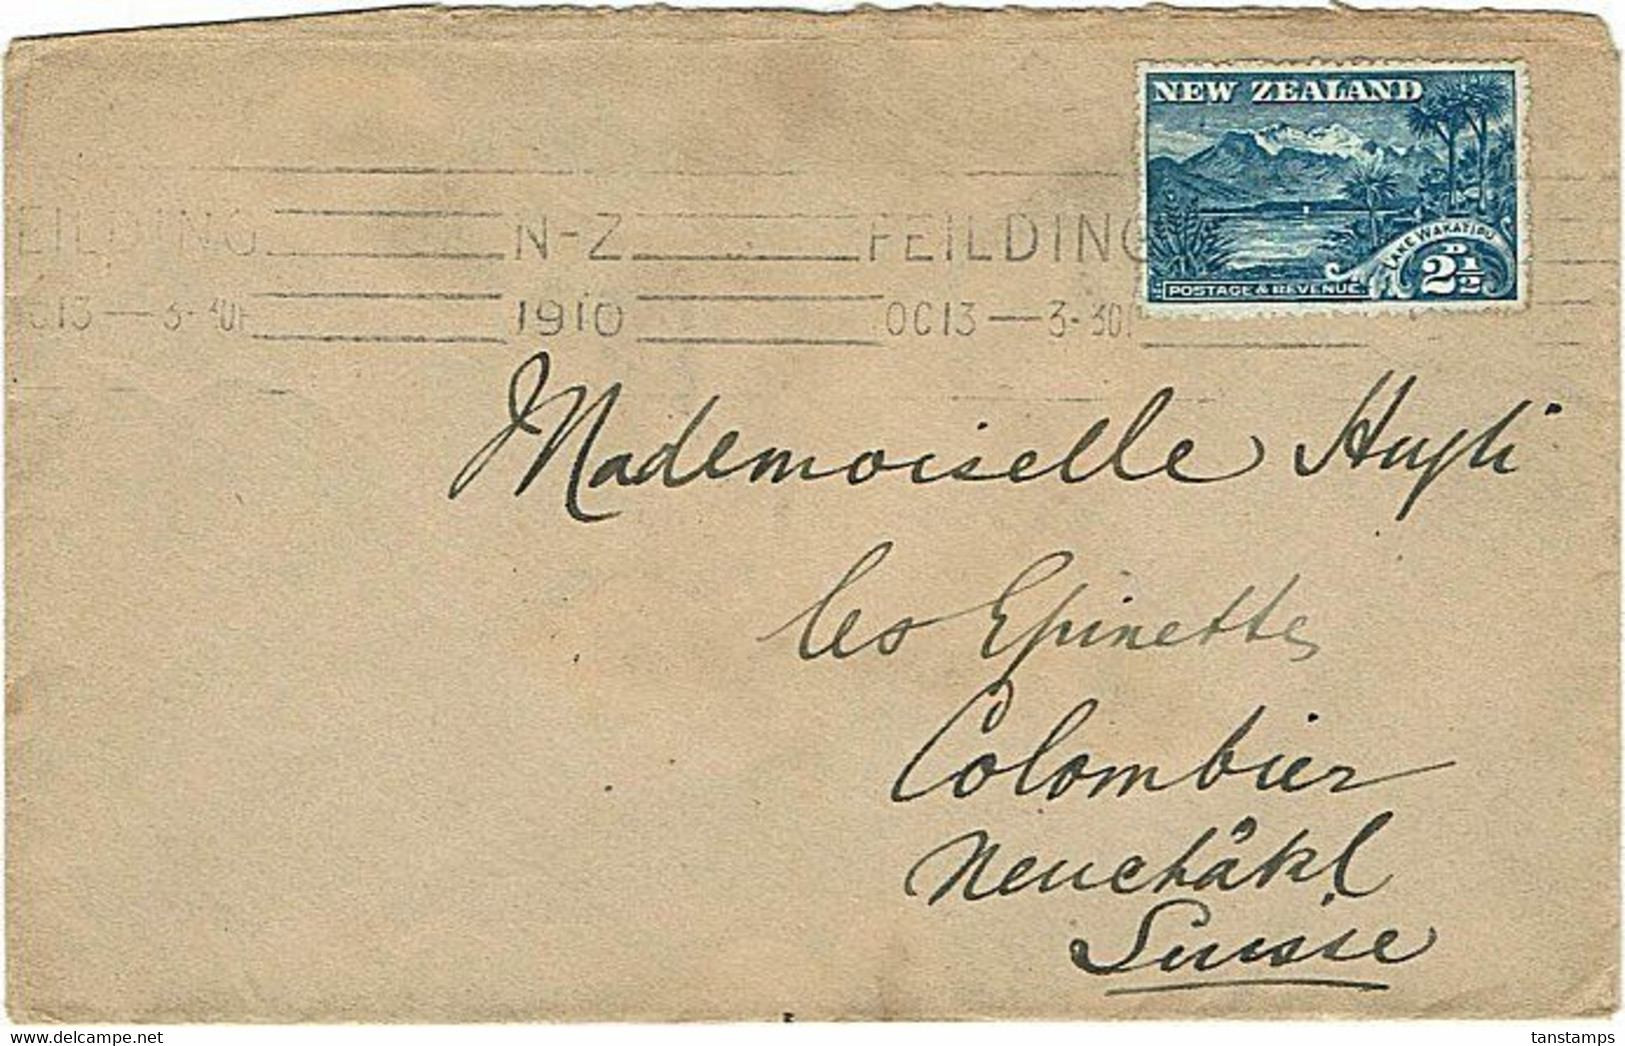 NEW ZEALAND
LAKE WAKATIPU
2½D
POSTAGE & REVENUE
EILDING N-Z FEILDING
OC13 — 3-30P 1910 OC13 — 3-30P
Mademoiselle Hugli
les Epinettes
Colombier
Neuchâtel
Suisse
www.delcampe.net
tanstamps